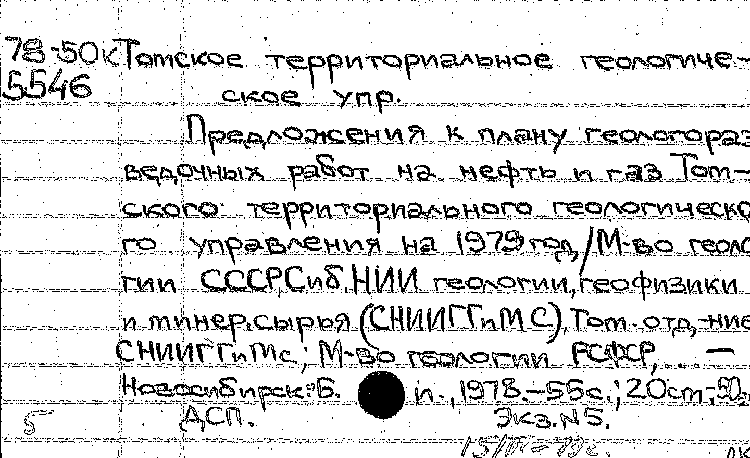 78-50к Томское территориальное геологиче-
5546 ское упр.
Предложения к плану геологораз
ведочных работ на нефть и газ Том-
ского территориального геологическо
го управления на 1979 год/М-во геоло
гии СССР,Сиб.НИИ геологии,геофизики
и минер.сырья (СНИИГГиМС),Том. отд-ние
СНИИГГиМс; М-во геологии РСФСР, —
Новосибирск:Б. и.,1978.-55с.;20см;-50
5 ДСП. Экз.N5.